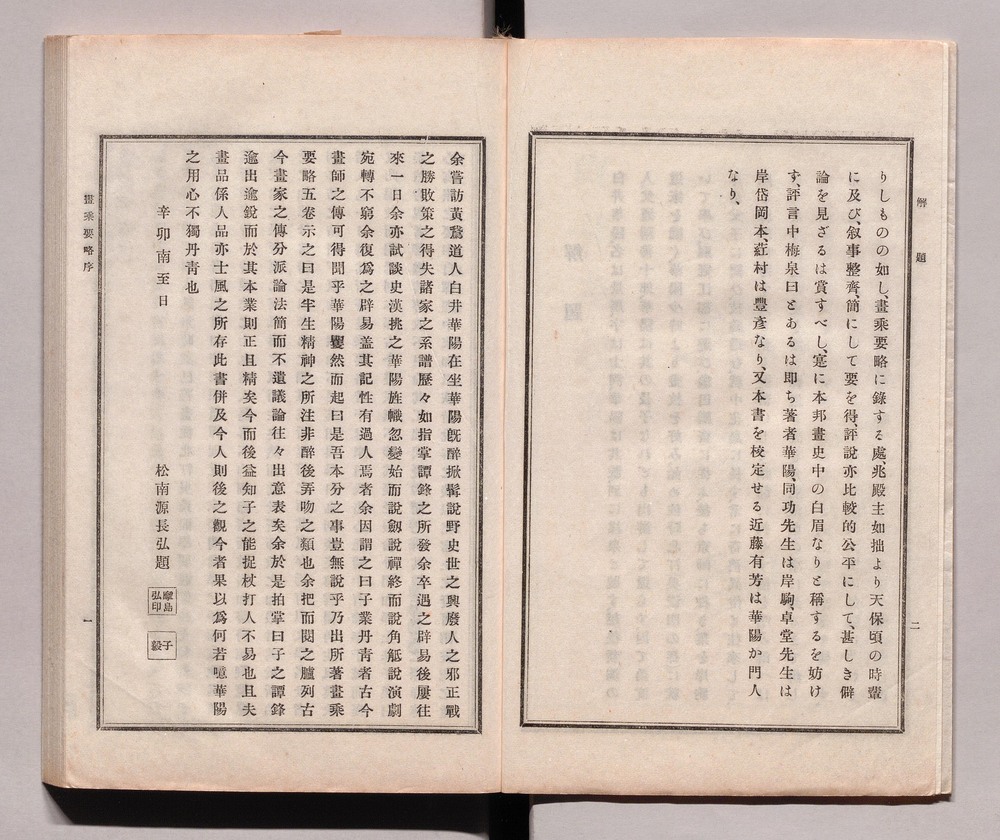 解題
二
りしものの如し、畫乘要略に錄する處、兆殿主如拙より天保頃の時輩
に及び、叙事整齊、簡にして要を得、評說亦比較的公平にして、甚しき僻
論を見ざるは賞すべし、寔に本邦畫史中の白眉なりと稱するを妨け
す、評言中梅泉曰とあるは即ち著者華陽、同功先生は岸駒、卓堂先生は
岸岱岡本、葒村は豐彥なり、又本書を校定せる近藤有芳は華陽か門人
なり、
余嘗訪黃鶖道人白井華陽在坐華陽旣醉掀髯說野史世之興廢人之邪正戰
之勝敗策之得失諸家之系譜歷々如指掌譚鋒之所發余卒遇之辟易後屢往
來一日余亦試談史漢挑之華陽旌幟忽變始而說劔說禪終而說角觝說演劇
宛轉不窮余復爲之辟易盖其記性有過人焉者余因謂之曰子業丹靑者古今
畫師之傳可得聞乎華陽矍然而起曰是吾本分之事豈無說乎乃出所著畫乘
要略五卷示之曰是半生精神之所注非醉後弄吻之類也余把而閱之臚列古
今畫家之傳分派論法簡而不遺議論往々出意表矣余於是拍掌曰子之譚鋒
逾出逾銳而於其本業則正且精矣今而後益知子之能捉杖打人不易也且夫
畫品係人品亦士風之所存此書併及今人則後之觀今者果以爲何若噫華陽
之用心不獨丹靑也
辛卯南至日
松南源長弘題
弘印
子毅
畫乘要略序
一